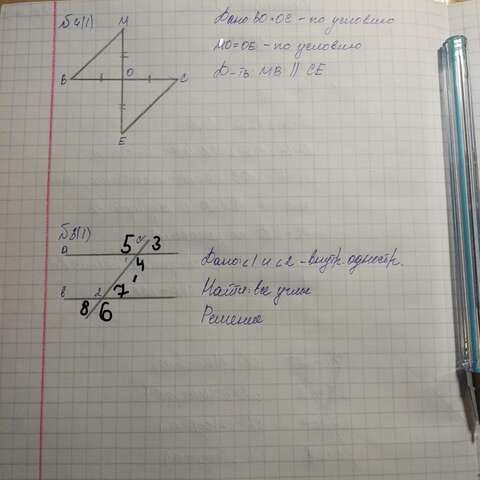 №4(1)
Дано: BO=OC - по условию
MO=OE - по условию
Д-ть: MB || CE
M
B
O
C
E
№3(1)
a
5
3
4
Дано: <1 и <2 - внутр. одностр.
b
2
7
Найти: все углы
8
6
Решение